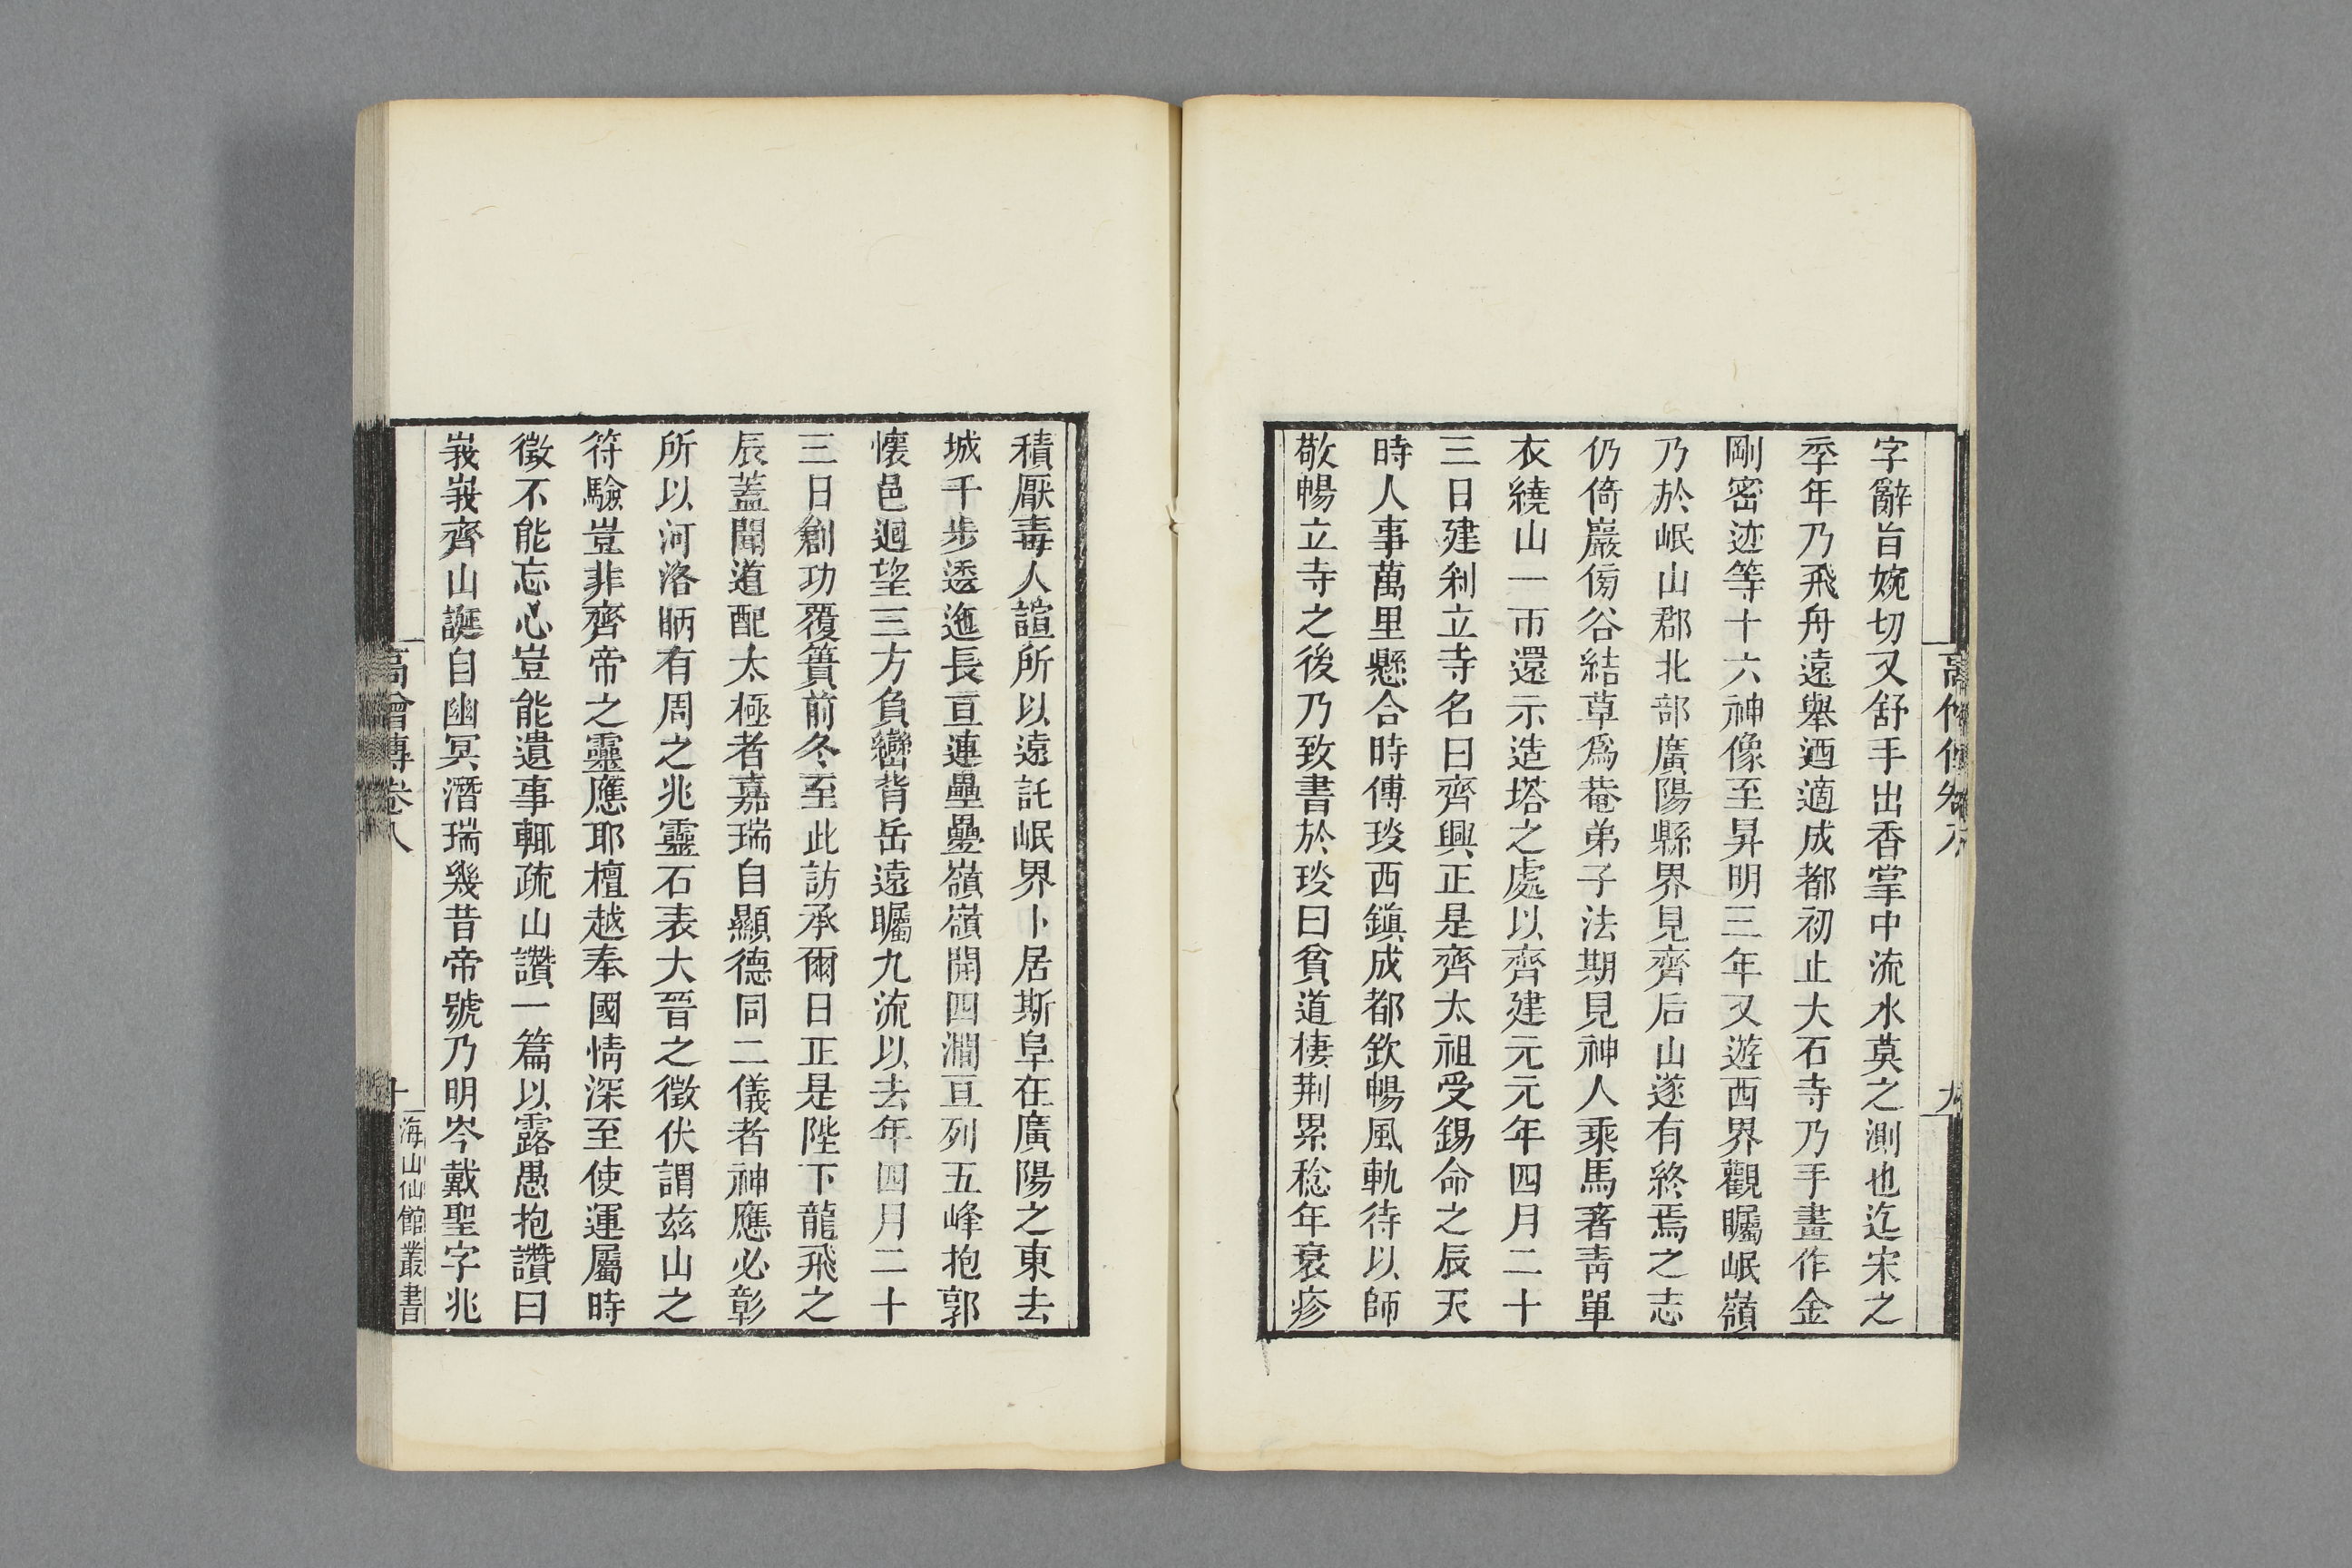 字辭旨婉切又舒手出香掌中流水莫之測也迄宋之
季年乃飛舟遠舉迺適成都初止大石寺乃手畫作金
剛密迹等十六神像至昇明三年又遊西界觀矚岷嶺
乃於岷山郡北部廣陽縣界見齊后山遂有終焉之志
仍倚巖傍谷結草爲菴弟子法期見神人乘馬著青單
衣繞山一帀還示造塔之處以齊建元元年四月二十
三日建刹立寺名曰齊興正是齊太祖受錫命之辰天
時人事萬里懸合時傅琰西鎭成都欽暢風軌待以師
敬暢立寺之後乃致書於琰曰貧道棲荆累稔年衰疹
積厭毒人諠所以遠託岷界卜居斯阜在廣陽之東去
城千步逶迤長亘連壘疊嶺嶺開四澗亘列五峰抱郭
懷邑迴望三方負巒背岳遠矚九流以去年四月二十
三日創功覆簣前冬至此訪承爾日正是陛下龍飛之
辰蓋聞道配太極者嘉瑞自顯德同二儀者神應必彰
所以河洛昞有周之兆靈石表大晉之徵伏謂茲山之
符驗豈非齊帝之靈應耶檀越奉國情深至使運屬時
徵不能忘心豈能遺事輒疏山讚一篇以露愚抱讚曰
峩峩齊山誕自幽冥潛瑞幾昔帝號乃明岑戴聖字兆
高僧傳卷八
十
海山仙館叢書